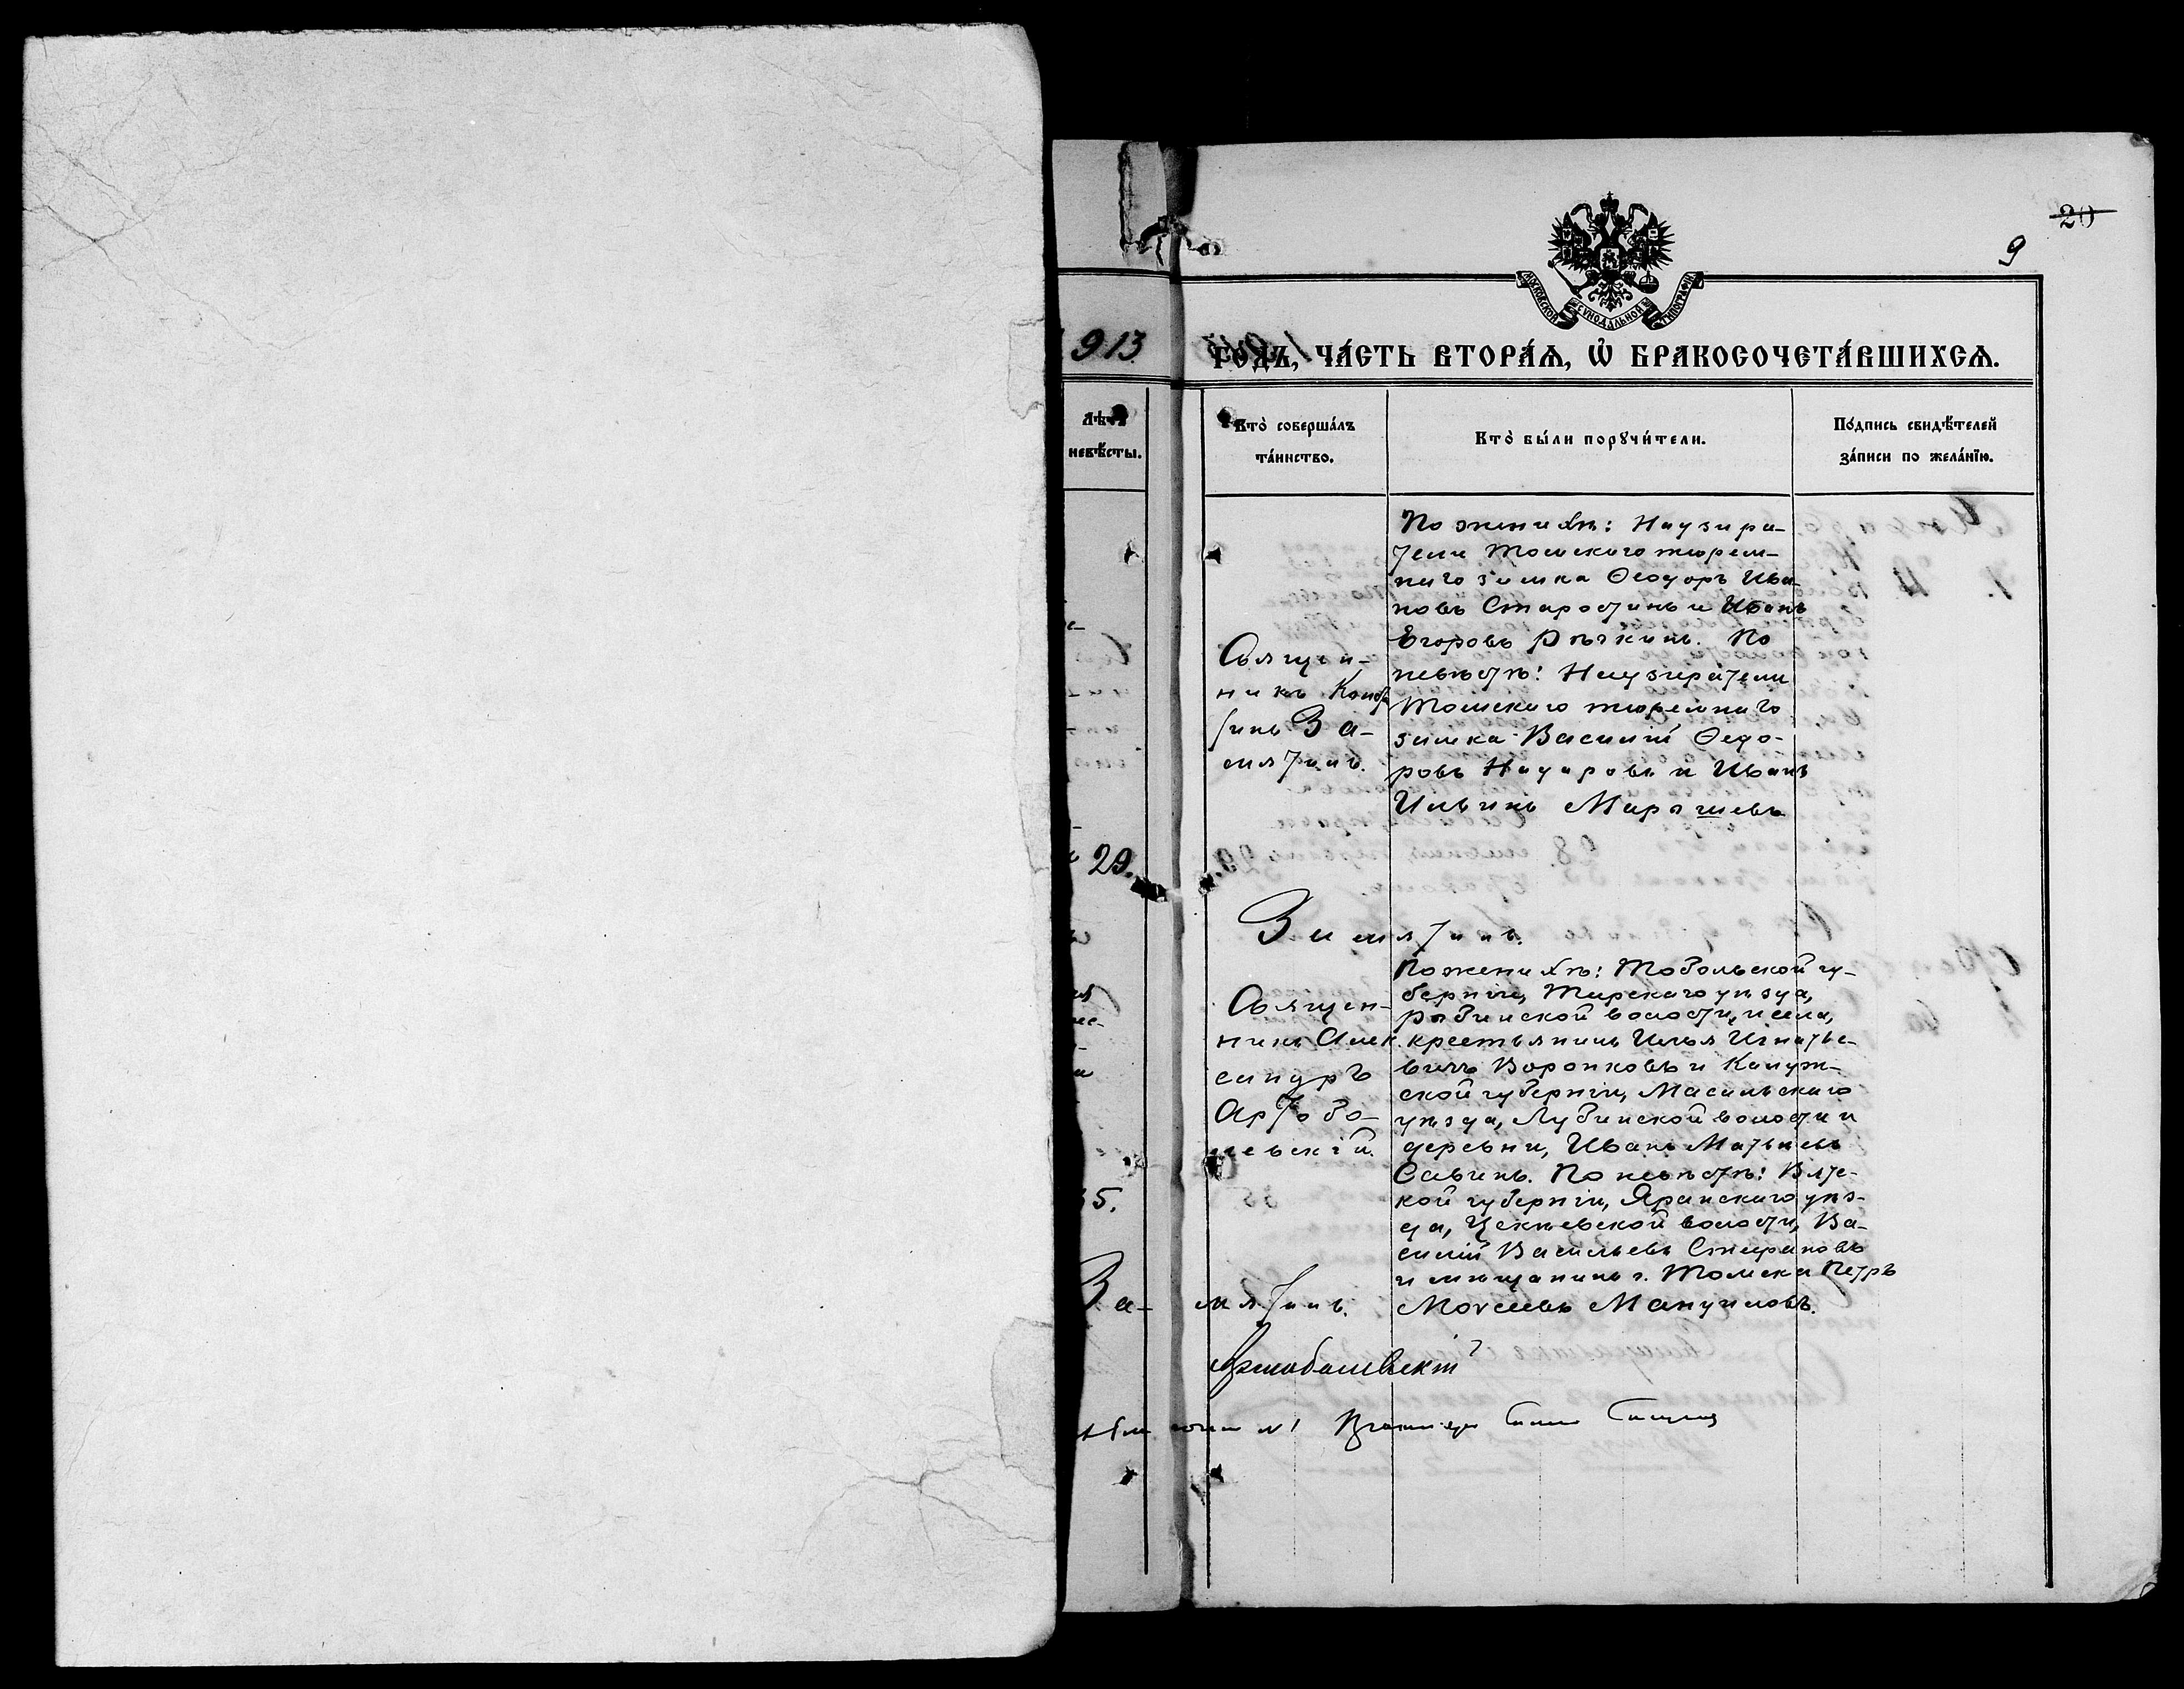 20
9
МОСКОВСКОЙ СѴНОДАЛЬНОЙ ТИПОГРАФІИ
913 ГО́ДЪ, ЧА́СТЬ ВТОРА́Ѧ, Ѡ҆ БРАКОСОЧЕТА́ВШИХСѦ.
Лѣтъ
невѣ́сты.
Кто̀ соверша́лъ
та́инство.
Кто̀ бы́ли порꙋчи́тели.
По́дпись свидѣ́телей
за́писи по жела́нїю.
29.
35.
Священ-
никъ Конст
тинъ За-
мятинъ.
По женихѣ: Надзира-
тели Томскаго тюрем-
наго замка Ѳеодоръ Ива-
новъ Старостинъ и Иванъ
Егоровъ Рѣчкинъ. По
невѣстѣ: Надзиратели
Томскаго тюремнаго
замка Василій Ѳедо-
ровъ Назаровъ и Иванъ
Ильинъ Марышевъ
Замятинъ.
Священ-
никъ Алек
сандръ
Артобо-
левскій.
По женихѣ: Тобольской гу-
берніи, Тарскаго уѣзда,
Рыбинской волости, и села,
крестьянинъ Илья Игнатье-
вичъ Воронковъ и Калуж-
ской губерніи, Масальскаго
уѣзда, Лубинской волости и
деревни, Иванъ Матвѣевъ
Савинъ. По невѣстѣ: Вятс-
кой губерніи, Яранскаго уѣз-
да, волости, Ва-
силій Васильевъ
и мѣщанинъ г. Томска Петръ
Моѵсеевъ Мануиловъ.
За-мятинъ.
Артоболевскій